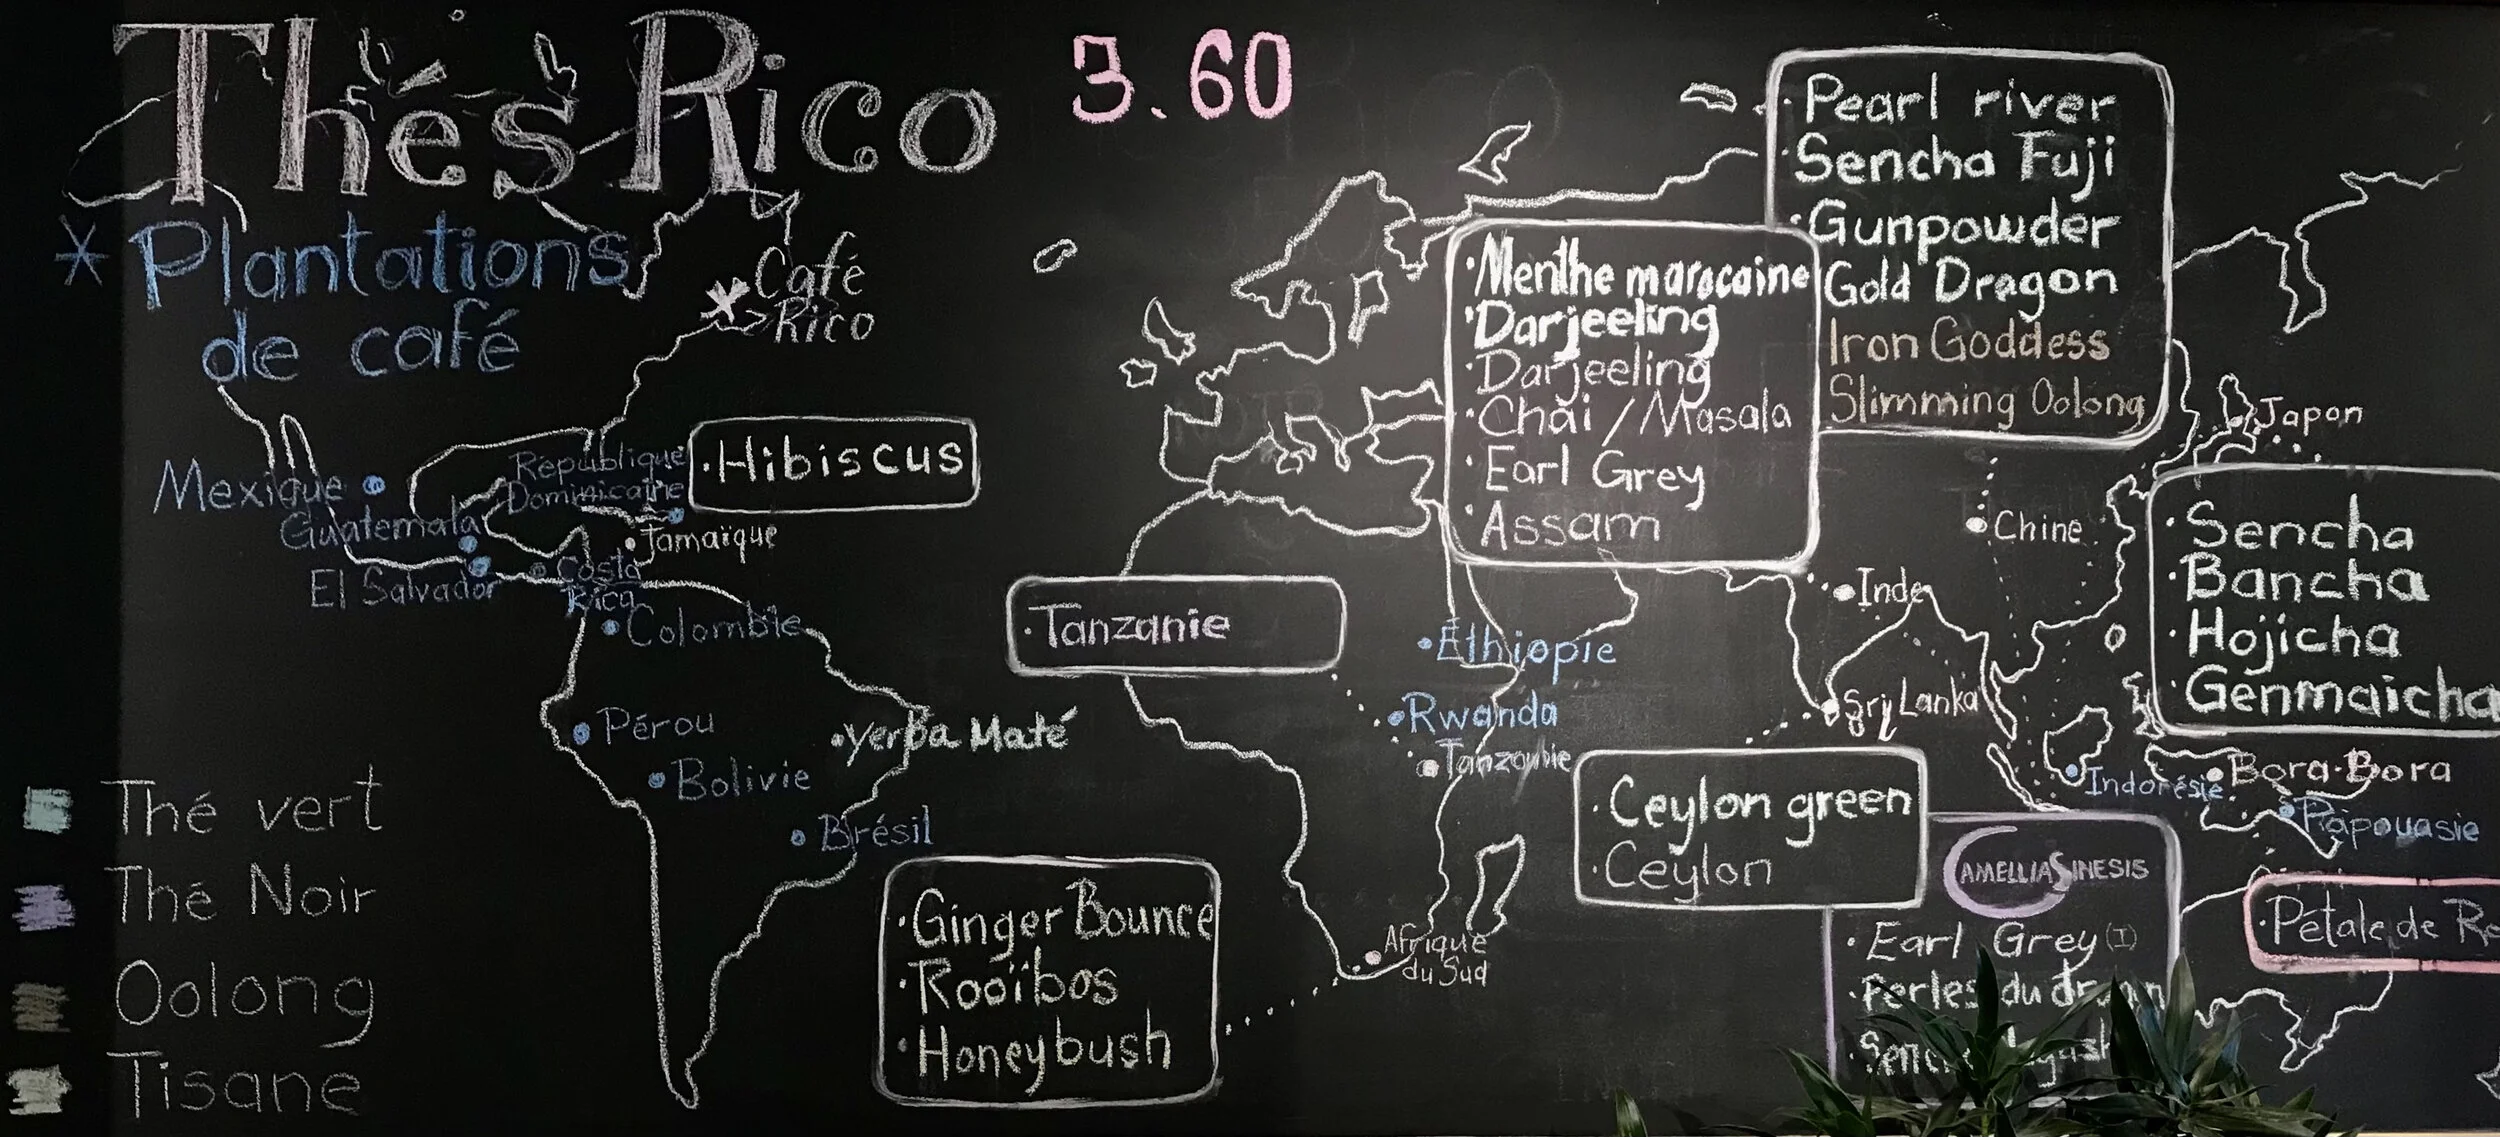 Thés Rico
3.60
* Plantations
de café
Café
Rico
· Pearl river
· Sencha Fuji
· Gunpowder
Gold Dragon
Iron Goddess
Slimming Oolong
· Menthe marocaine
· Darjeeling
· Darjeeling
· Chai / Masala
· Earl Grey
· Assam
Japon
Chine
Inde
· Sencha
· Bancha
· Hojicha
· Genmaicha
· Hibiscus
Mexique
République
Dominicaine
Guatemala
Jamaïque
El Salvador
Costa
Rica
Colombie
· Tanzanie
Éthiopie
Rwanda
Tanzanie
Sri Lanka
Pérou
· Yerba Maté
Bolivie
Brésil
· Ceylon green
· Ceylon
Indonésie
Bora-Bora
Papouasie
CAMELLIA SINESIS
· Earl Grey (I)
· Perles du
· Pétale de
Thé vert
Thé Noir
Oolong
Tisane
· Ginger Bounce
· Rooïbos
· Honeybush
Afrique
du Sud